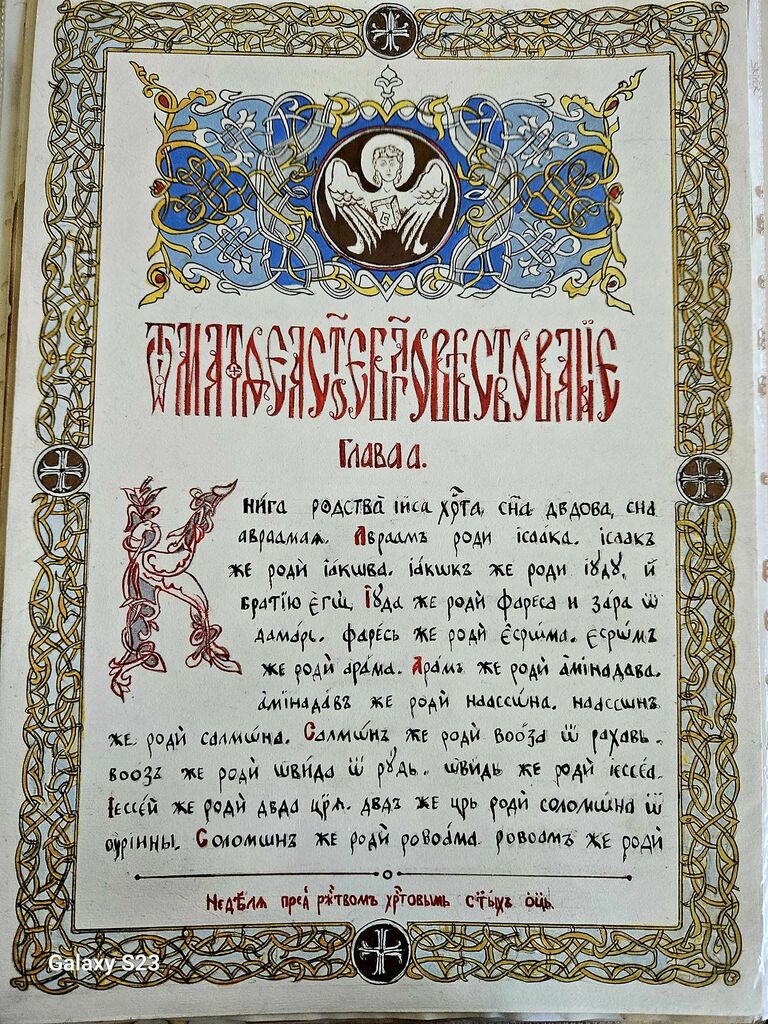 Ѿ МАТѲЕꙖ СТ҃Ѣ ЕВⷢ҇АЛОВѢСТВОВАНЇЕ
Глава а.
Кни́га родства̀ ії҃са хрⷭ҇та̀, сн҃а дв҃дова, сн҃а
авраамѧ. Авраамъ роди ісаа́ка. ісаакъ
же роди̇̀ іа́кѡва. іа́кѡкъ же роди іꙋдꙋ, й
братїю є҆гѡ̀, Іꙋда же роди̇̀ фаре́са и за́ра ѿ
дама́рь. фаре́сь же роди̇̀ є҆срѡ́ма. є҆срѡ́мъ
же роди̇̀ ара́ма. Ара́мъ же роди̇̀ а҆мінадава.
а҆мінада́въ же роди̇̀ наассѡ́на. наассѡнъ
же роди̇̀ салмѡ́на. Салмѡ́нъ же роди̇̀ воо́за ѿ рахавь.
воо́зъ же роди̇̀ ѡви́да ѿ рꙋ́дь. ѡви́дь же роди̇̀ іессе́а.
Іессе́й же роди̇̀ дв҃да цр҃ѧ. дв҃дъ же цр҃ь роди̇̀ соломѡ́на ѿ
оурі́ины. Соломѡнъ же роди̇̀ ровоа́ма. ровоамъ же роди̇̀
Недѣ́лѧ пред̾ рж҃твомъ хрⷭ҇товымь ст҃ы́хъ ѻ҆ц҃ь